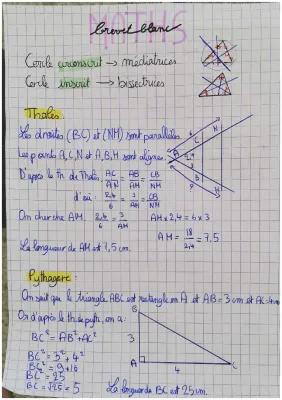 MATHS
brevet blanc
Cercle circonscrit → médiatrices
Cercle inscrit → bissectrices
Thalès
Les droites (BC) et (NM) sont parallèles.
Les points A, C, N et A, B, M sont alignés.
D'après le th de Thalès, AC/AN = AB/AM = CB/NM
d'où : 2,4/6 = 3/AM = CB/NM
On cherche AM. 2,4/6 = 3/AM AM x 2,4 = 6 x 3
AM = 18/2,4 = 7,5
La longueur de AM est 7,5 cm.
Pythagore :
On sait que le triangle ABC est rectangle en A et AB = 3 cm et AC = 4 cm
On d'après le th de pyth, on a :
BC² = AB² + AC²
BC² = 3² + 4²
BC² = 9 + 16
BC² = 25
BC = √25 = 5
La longueur de BC est 25 cm.
B
3
A
4
C